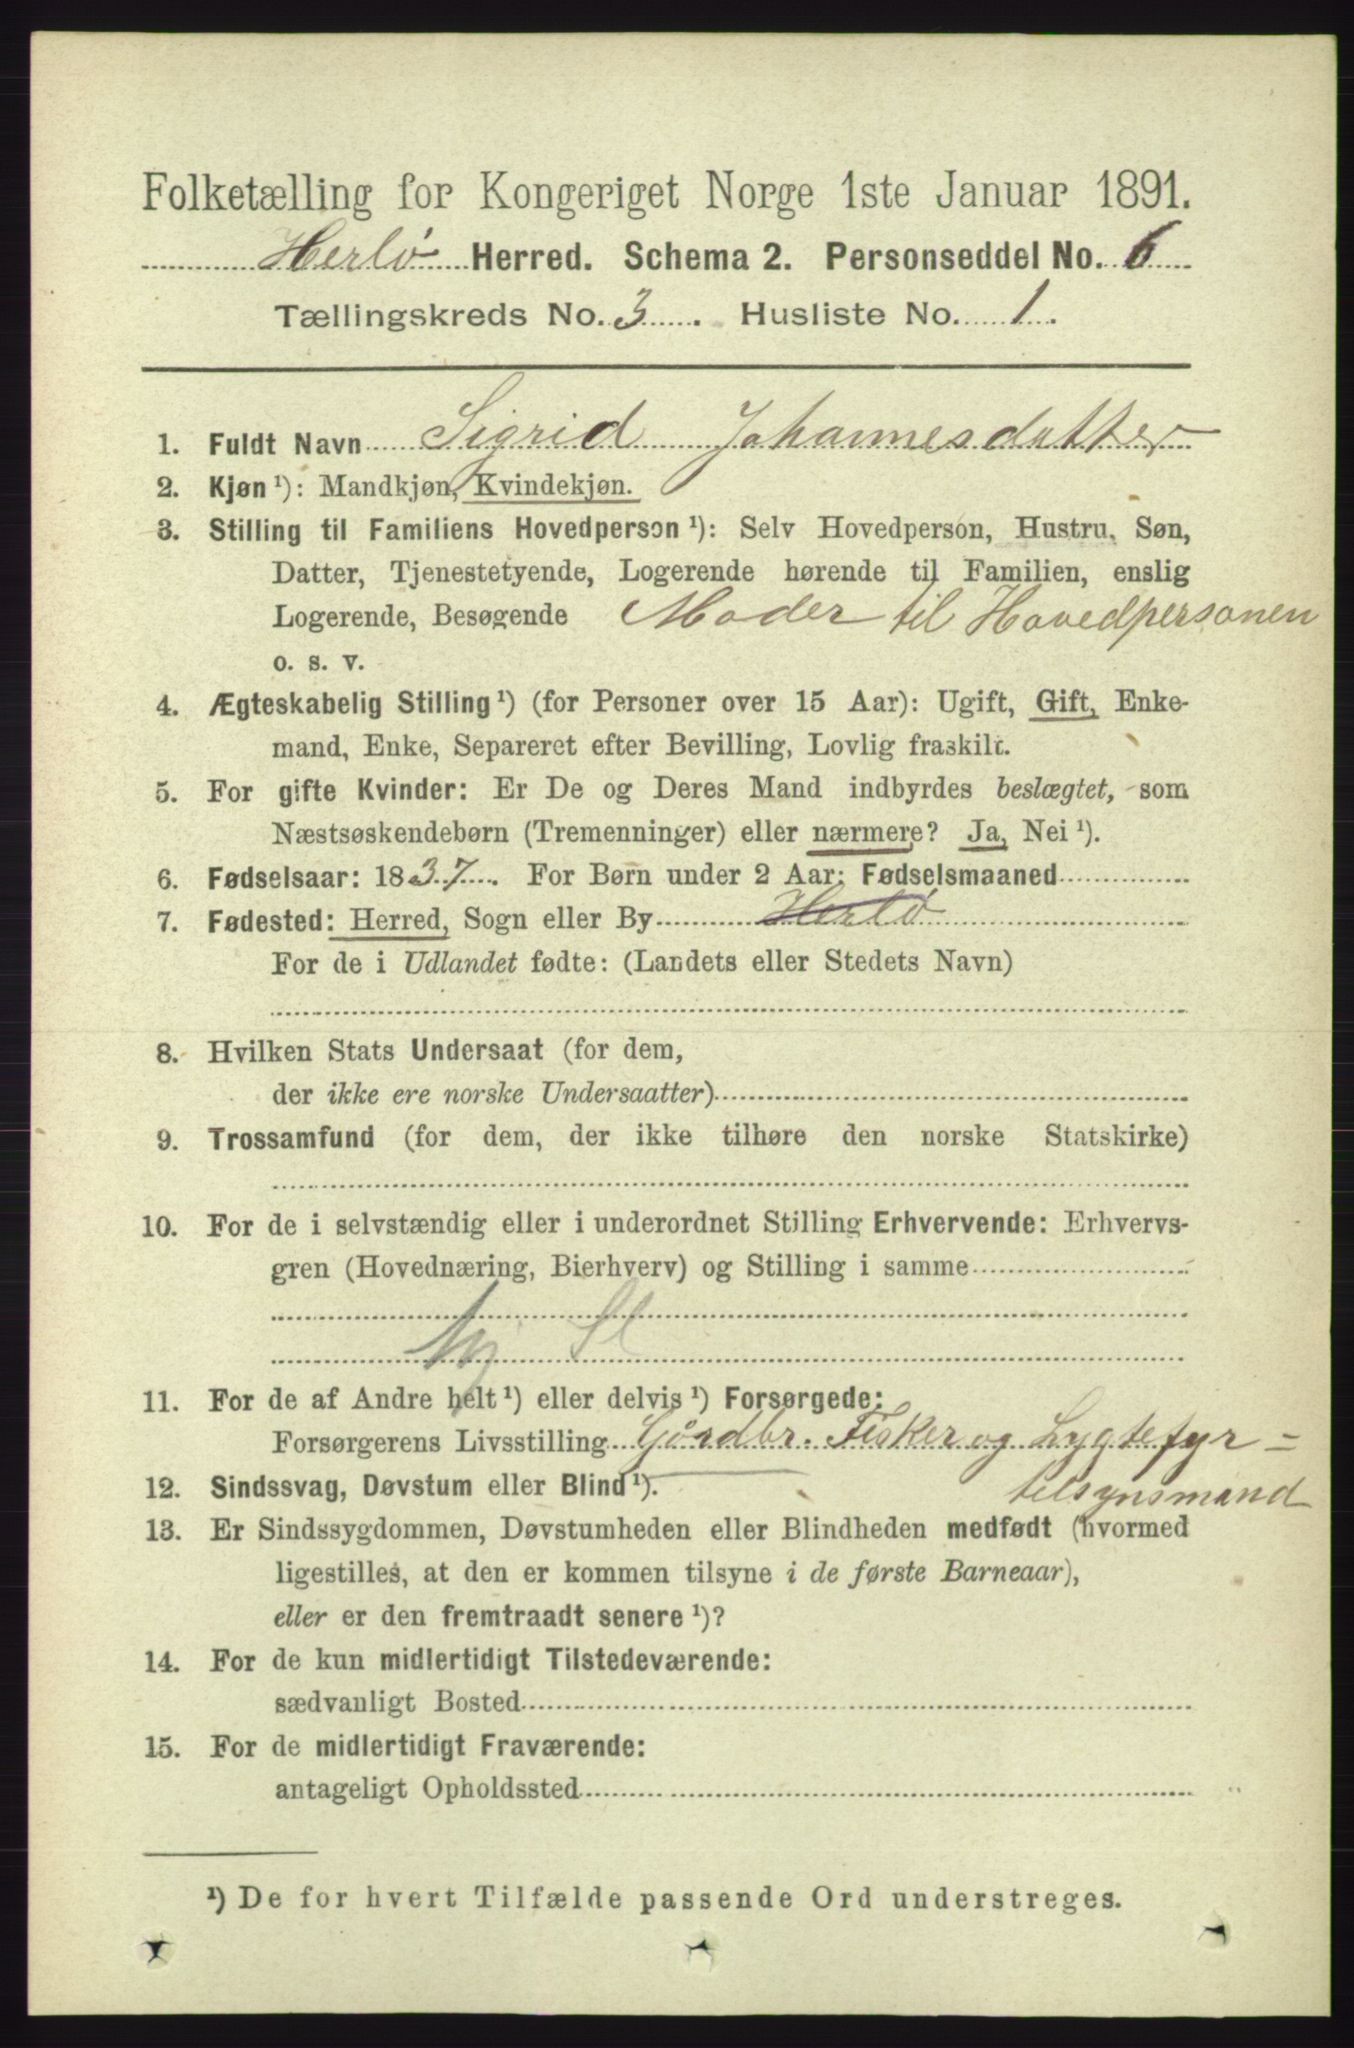 Folketælling for Kongeriget Norge 1ste Januar 1891.
Herlø Herred. Schema 2. Personseddel No. 6
Tællingskreds No. 3. Husliste No. 1.
1. Fuldt Navn Sigrid Johannesdatter
2. Kjøn ¹): Mandkjøn, Kvindekjøn.
3. Stilling til Familiens Hovedperson ¹): Selv Hovedperson, Hustru, Søn,
Datter, Tjenestetyende, Logerende hørende til Familien, enslig
Logerende, Besøgende Moder til Hovedpersonen
o. s. v.
4. Ægteskabelig Stilling ¹) (for Personer over 15 Aar): Ugift, Gift, Enke-
mand, Enke, Separeret efter Bevilling, Lovlig fraskilt.
5. For gifte Kvinder: Er De og Deres Mand indbyrdes beslægtet, som
Næstsøskendebørn (Tremenninger) eller nærmere? Ja, Nei ¹).
6. Fødselsaar: 1837. For Børn under 2 Aar: Fødselsmaaned
7. Fødested: Herred, Sogn eller By Herlø
For de i Udlandet fødte: (Landets eller Stedets Navn)
8. Hvilken Stats Undersaat (for dem,
der ikke ere norske Undersaatter)
9. Trossamfund (for dem, der ikke tilhøre den norske Statskirke)
10. For de i selvstændig eller i underordnet Stilling Erhvervende: Erhvervs-
gren (Hovednæring, Bierhverv) og Stilling i samme
11. For de af Andre helt ¹) eller delvis ¹) Forsørgede:
Forsørgerens Livsstilling Gårdbr. Fisker og Lygtefyr=
tilsynsmand
12. Sindssvag, Døvstum eller Blind ¹).
13. Er Sindssygdommen, Døvstumheden eller Blindheden medfødt (hvormed
ligestilles, at den er kommen tilsyne i de første Barneaar),
eller er den fremtraadt senere ¹)?
14. For de kun midlertidigt Tilstedeværende:
sædvanligt Bosted
15. For de midlertidigt Fraværende:
antageligt Opholdssted
¹) De for hvert Tilfælde passende Ord understreges.